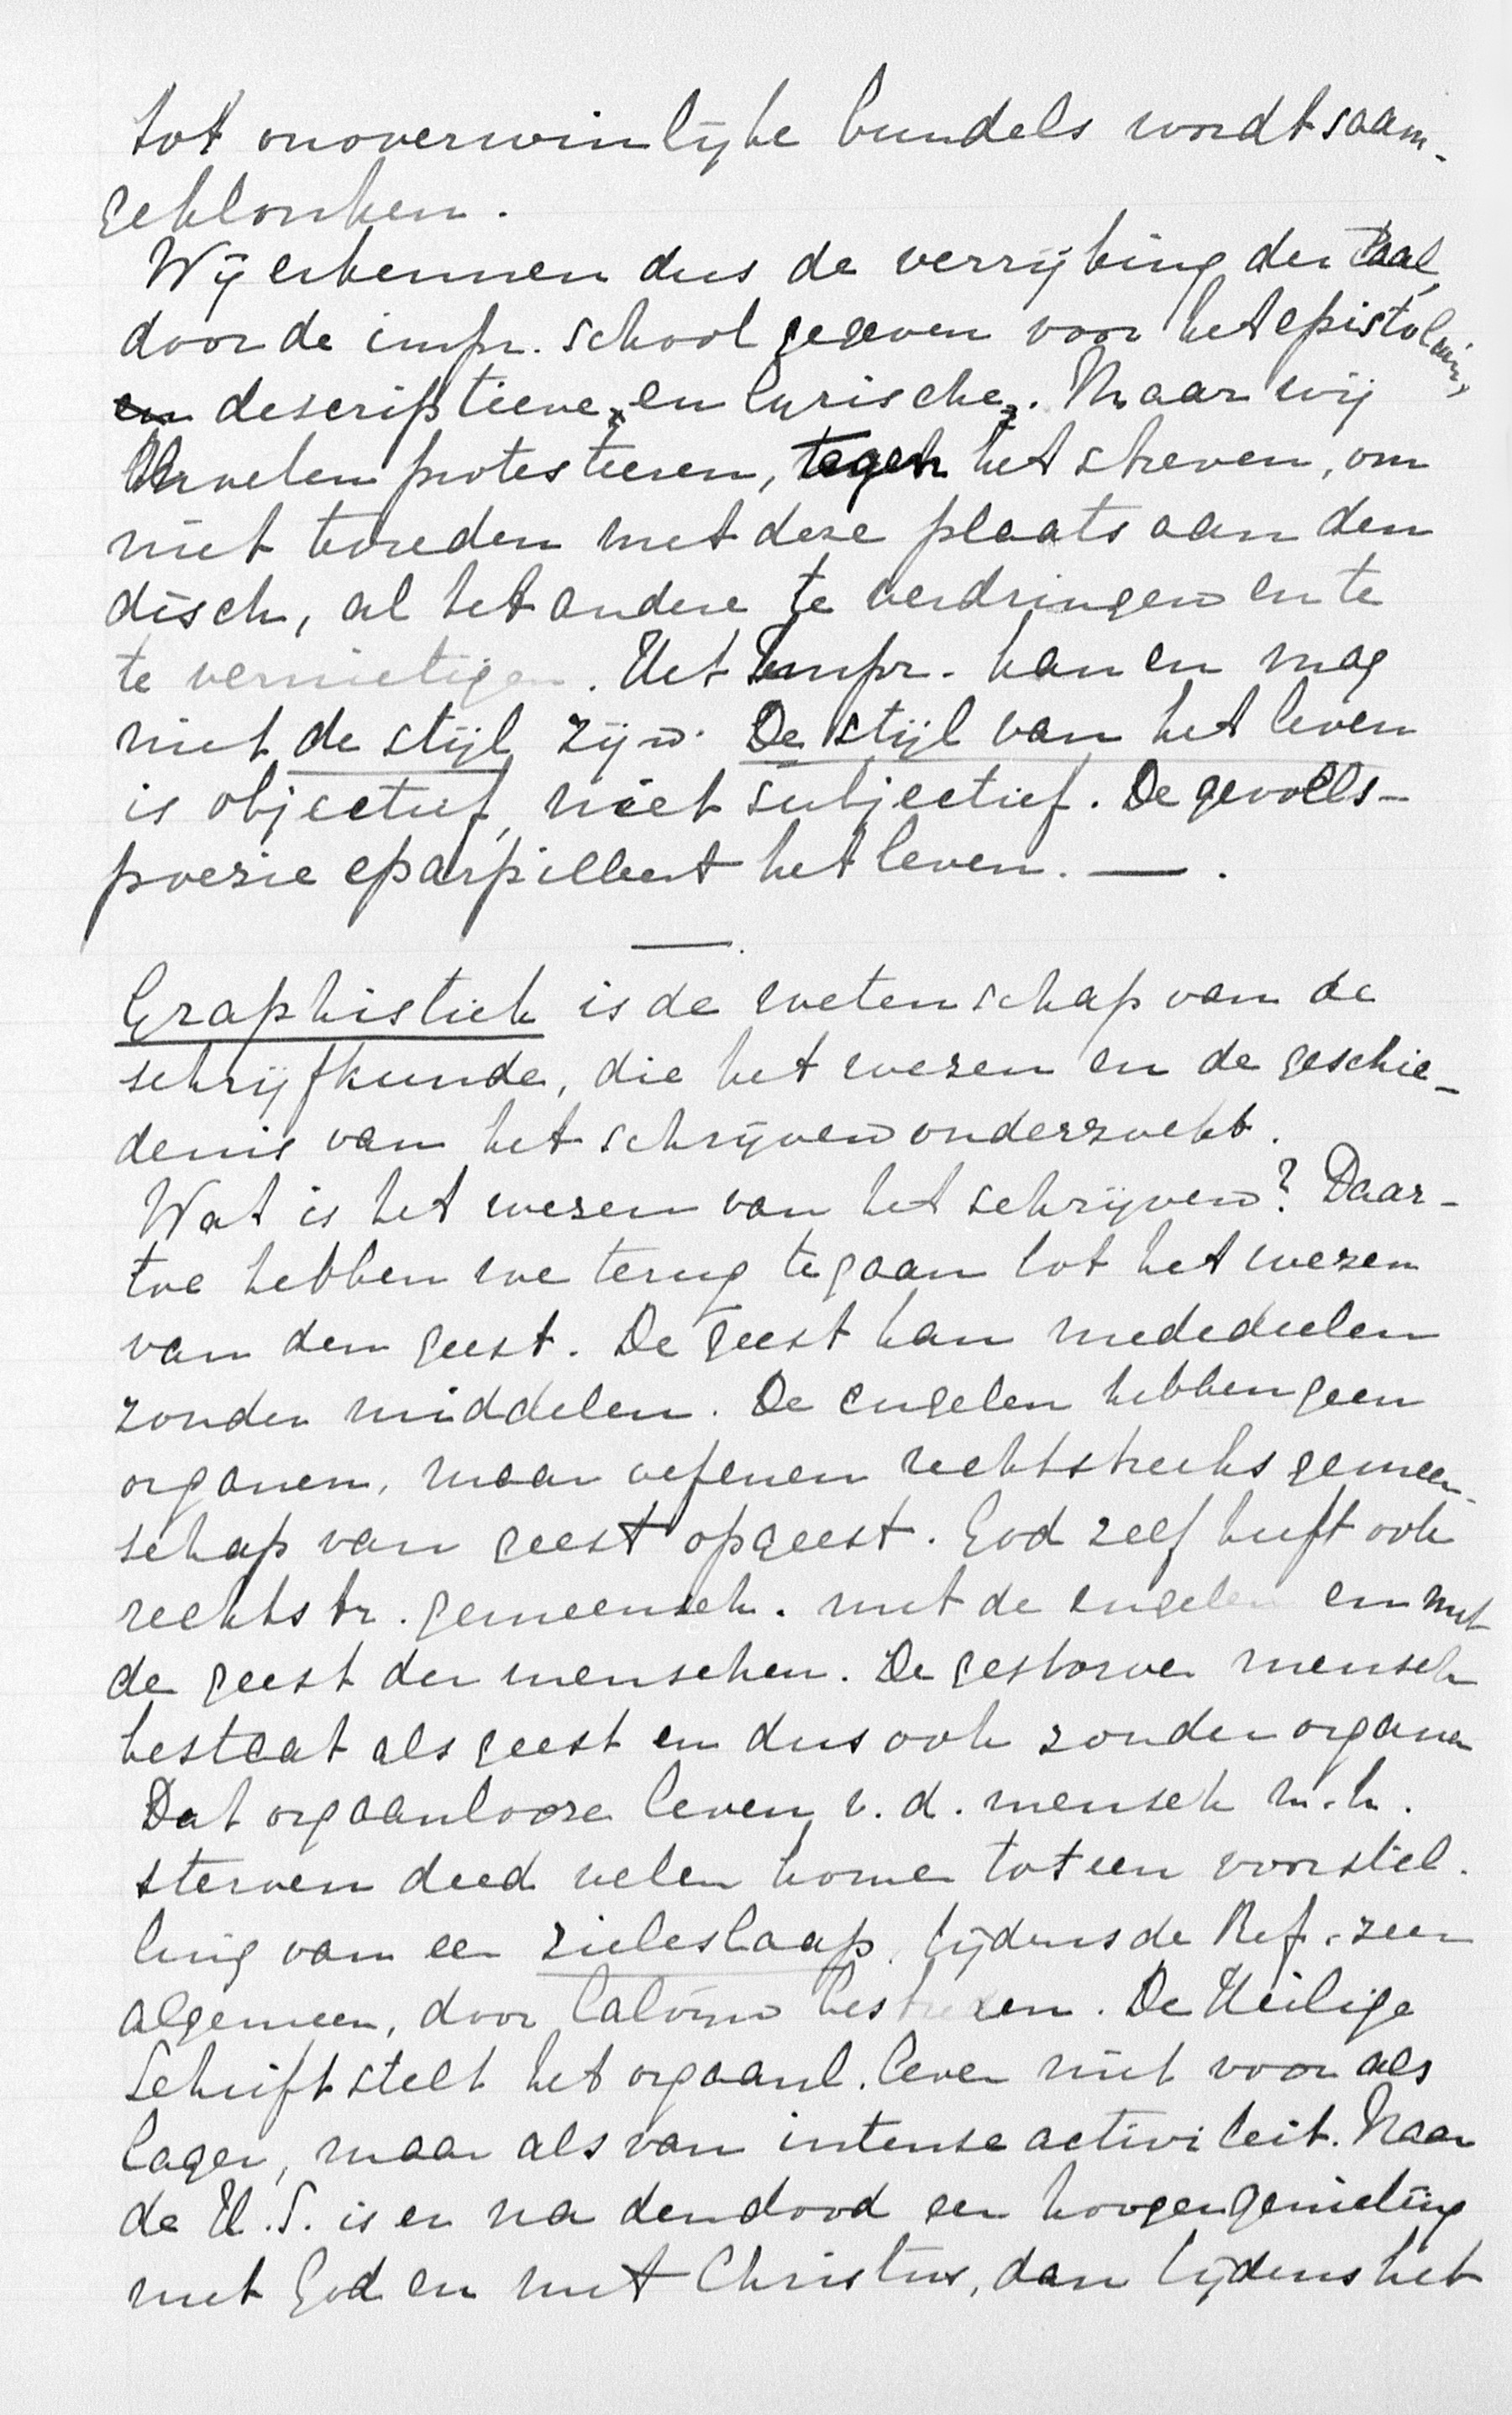 tot onoverwinlijke bundels wordt saam-
geklonken.
Wij erkennen dus de verrijking der taal,
door de impr. school gegeven voor het epistol
en descriptieve, en lyrische. Maar wij
protesteeren, tegen het streven, om
niet tevreden met deze plaats aan den
disch, al het andere te verdringen en te
te vernietigen. Het Impr. kan en mag
niet de stijl zijn. De stijl van het leven
is objectief, niet subjectief. De gevoels-
poezie eparpilleert het leven. — .
Graphistiek is de wetenschap van de
schrijfkunde, die het wezen en de geschie-
denis van het schrijven onderzoekt.
Wat is het wezen van het schrijven? Daar-
toe hebben we terug te gaan tot het wezen
van den geest. De geest kan mededeelen
zonder middelen. De engelen hebben geen
organen, maar oefenen rechtstreeks gemeen-
schap van geest op geest. God zelf heeft ook
rechtstr. gemeensch. met de engelen en met
de geest der menschen. De gestorven mensch
bestaat als geest en dus ook zonder organen
Dat orgaanlooze leven v. d. mensch n. h.
sterven deed velen komen tot een voorstel-
ling van een zieleslaap, tijdens de Ref. zeer
algemeen, door Calvijn bestreden. De Heilige
Schrift stelt het orgaanl. leven niet voor als
lager, maar als van intense activiteit. Naar
de H. S. is er na den dood een hooger genieting
met God en met Christus, dan tijdens het